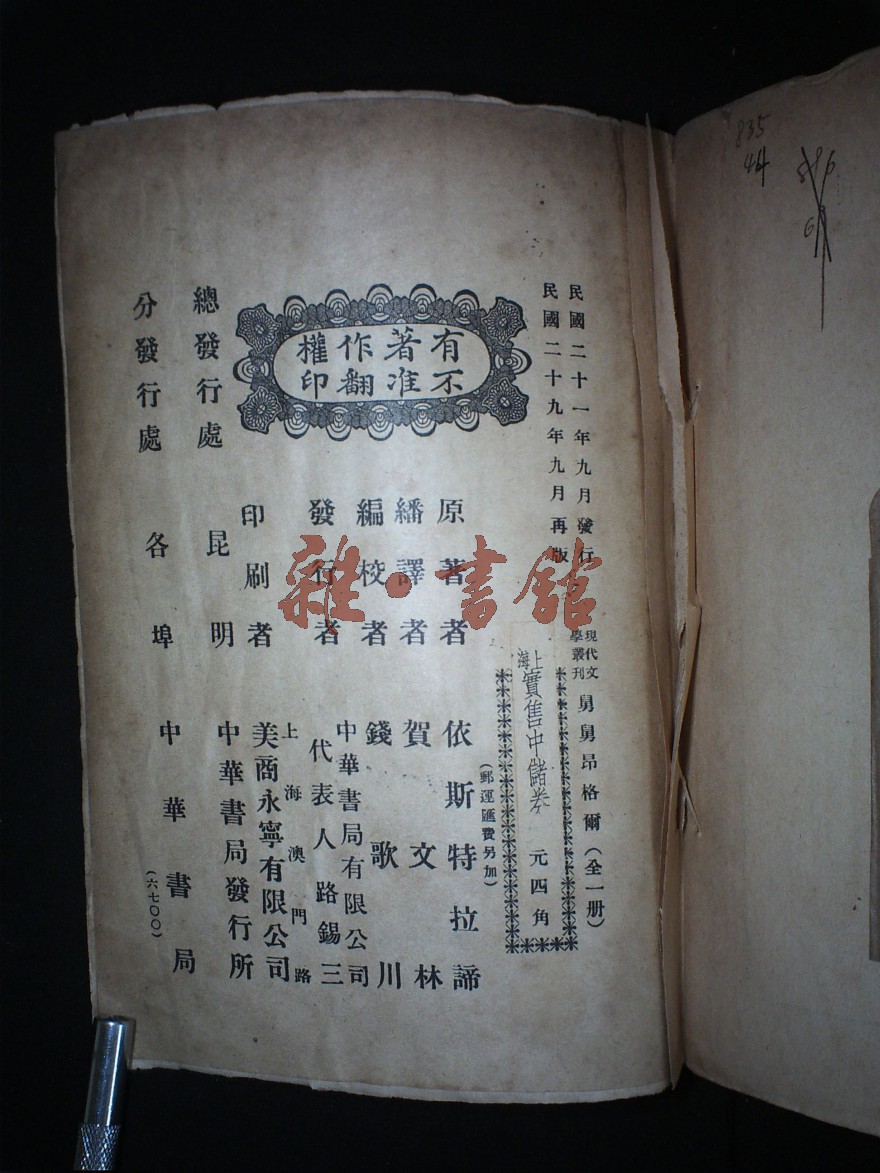 民國二十一年九月發行
民國二十九年九月再版
現代文學叢刊
舅舅昂格爾（全一册）
上海實售中儲券
元四角
（郵運匯費另加）
有著作權
不准翻印
原著者 依斯特拉諦
繙譯者 賀文林
編校者 錢歌川
發行者 中華書局有限公司
代表人路錫三
印刷者 上海澳門路
美商永寧有限公司
總發行處 昆明 中華書局發行所
分發行處 各埠 中華書局
（六七〇〇）
雜·書館
835
44